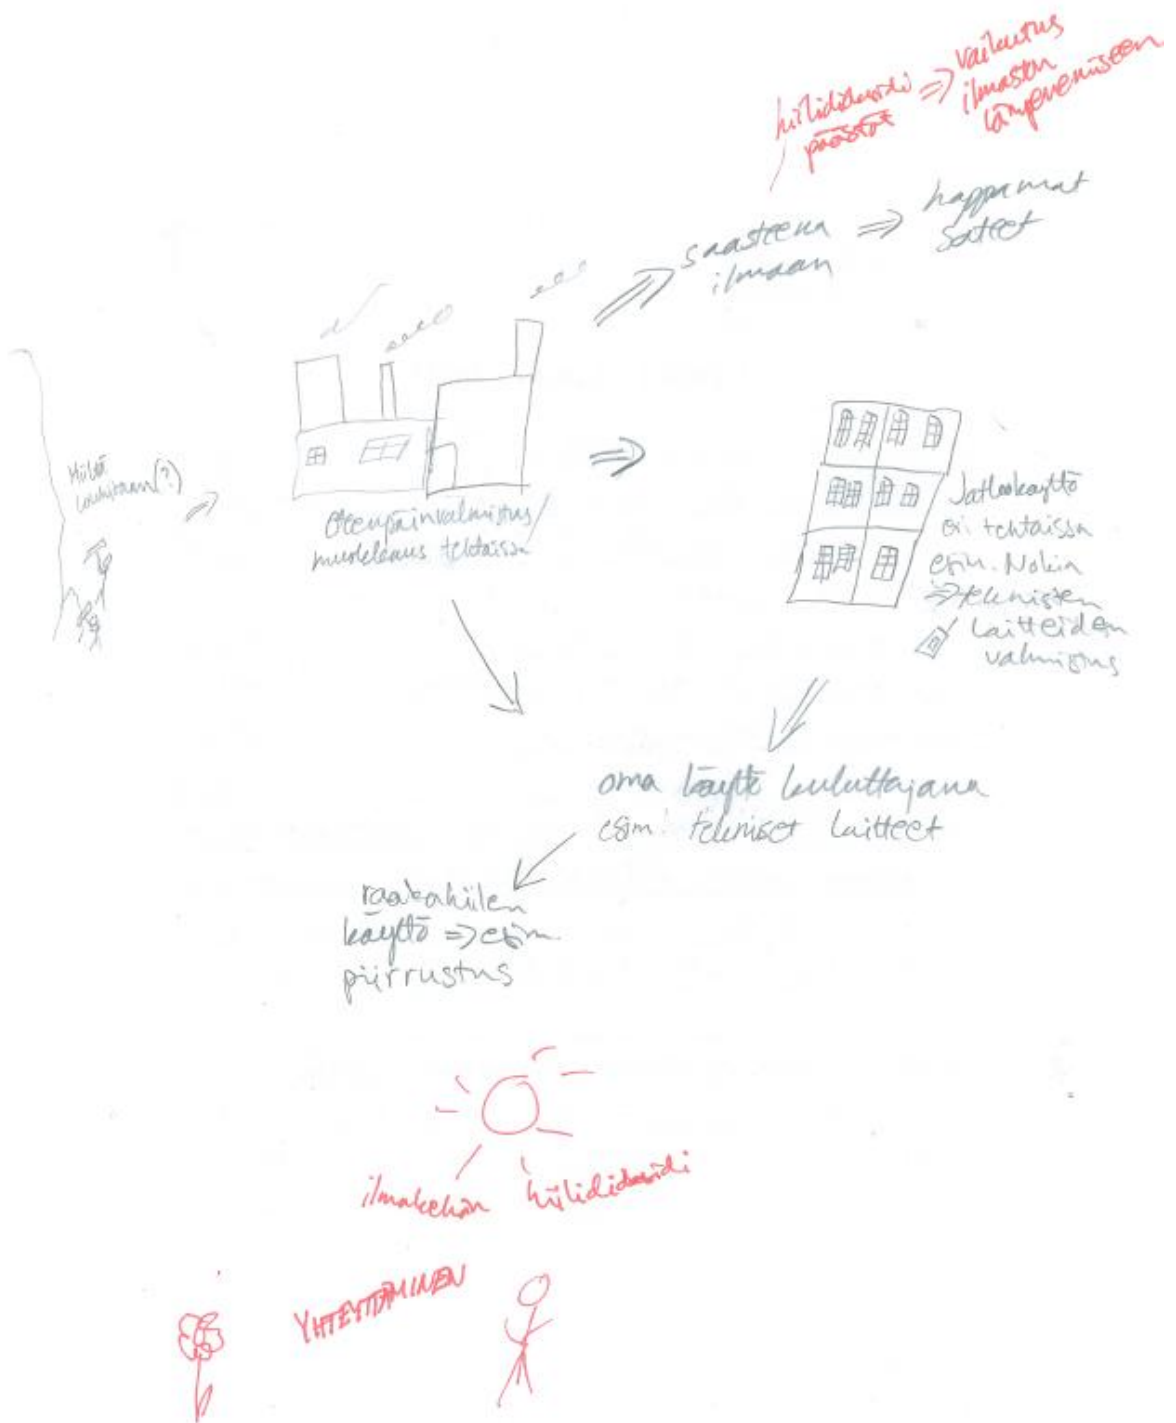 hiilidioksidi
päästöt
⇒ vaikutus
ilmaston
lämpenemiseen
saasteena
ilmaan
⇒ happamat
sateet
Hiiltä
louhitaan(?)
Eteenpäinvalmistus/
muokkaus tehtaissa
Jatkokäyttö
eri tehtaissa
esim. Nokia
⇒ teknisten
laitteiden
valmistus
oma käyttö kuluttajana
esim. tekniset laitteet
raakahiilen
käyttö ⇒ esim.
piirrustus
ilmakehän hiilidioksidi
YHTEYTTÄMINEN